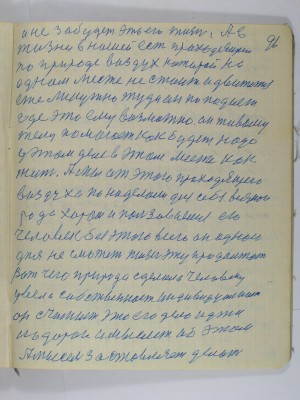 и не забудет этого жизни. А в
жизни в нашей ест проходящий
по природе воздух который на
одном месте не стоит и двигается
где это ему возможно он живому
телу помогает как будет надо
у этом деле в этом месте как
жит. А мы от этого проходящего
воздуха по наделали для себя всякого
рода хором и пользовались ею
человек без этого всего он одного
дня не сможет жизнь эту продолжат
вот чего природа сделала человеку
увела собственност индивидуал
он считает это его дело идти
и дорогой мыслит об этом
А мысел заставляет делат